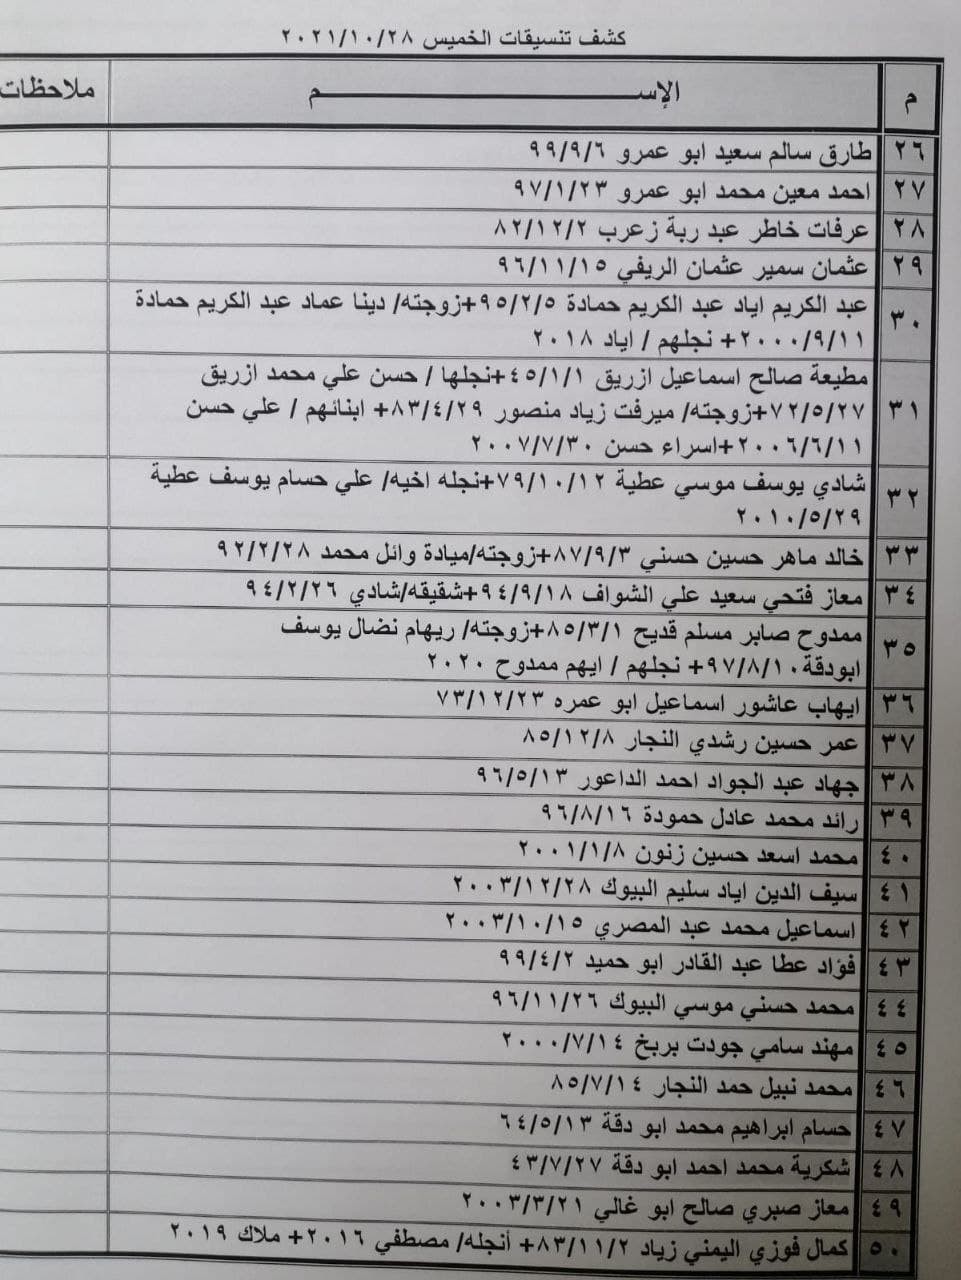 كشف تنسيقات الخميس ٢٠٢١/١٠/٢٨
م الإســـــــــم ملاحظات
٢٦ طارق سالم سعيد ابو عمرو ٩٩/٩/٦
٢٧ احمد معين محمد ابو عمرو ٩٧/١/٢٣
٢٨ عرفات خاطر عبد ربة زعرب ٨٢/١٢/٢
٢٩ عثمان سمير عثمان الريفي ٩٦/١١/١٥
٣٠ عبد الكريم اياد عبد الكريم حمادة ٩٥/٢/٥+زوجته/ دينا عماد عبد الكريم حمادة
٢٠٠٠/٩/١١+ نجلهم / اياد ٢٠١٨
٣١ مطيعة صالح اسماعيل ازريق ٤٥/١/١+نجلها / حسن علي محمد ازريق
٧٢/٥/٢٧+زوجته/ ميرفت زياد منصور ٨٣/٤/٢٩+ ابنائهم / علي حسن
٢٠٠٦/٦/١١+اسراء حسن ٢٠٠٧/٧/٣٠
٣٢ شادي يوسف موسي عطية ٧٩/١٠/١٢+نجله اخيه/ علي حسام يوسف عطية
٢٠١٠/٥/٢٩
٣٣ خالد ماهر حسين حسني ٨٧/٩/٣+زوجته/ميادة وائل محمد ٩٢/٢/٢٨
٣٤ معاز فتحي سعيد علي الشواف ٩٤/٩/١٨+شقيقه/شادي ٩٤/٢/٢٦
٣٥ ممدوح صابر مسلم قديح ٨٥/٣/١+زوجته/ ريهام نضال يوسف
ابودقة٩٧/٨/١٠+ نجلهم / ايهم ممدوح ٢٠٢٠
٣٦ ايهاب عاشور اسماعيل ابو عمره ٧٣/١٢/٢٣
٣٧ عمر حسين رشدي النجار ٨٥/١٢/٨
٣٨ جهاد عبد الجواد احمد الداعور ٩٦/٥/١٣
٣٩ رائد محمد عادل حمودة ٩٦/٨/١٦
٤٠ محمد اسعد حسين زنون ٢٠٠١/١/٨
٤١ سيف الدين اياد سليم البيوك ٢٠٠٣/١٢/٢٨
٤٢ اسماعيل محمد عبد المصري ٢٠٠٣/١٠/١٥
٤٣ فؤاد عطا عبد القادر ابو حميد ٩٩/٤/٢
٤٤ محمد حسني موسي البيوك ٩٦/١١/٢٦
٤٥ مهند سامي جودت بربخ ٢٠٠٠/٧/١٤
٤٦ محمد نبيل حمد النجار ٨٥/٧/١٤
٤٧ حسام ابراهيم محمد ابو دقة ٦٤/٥/١٣
٤٨ شكرية محمد احمد ابو دقة ٤٣/٧/٢٧
٤٩ معاز صبري صالح ابو غالي ٢٠٠٣/٣/٢١
٥٠ كمال فوزي اليمني زياد ٨٣/١١/٢+ أنجله/ مصطفي ٢٠١٦+ ملاك ٢٠١٩